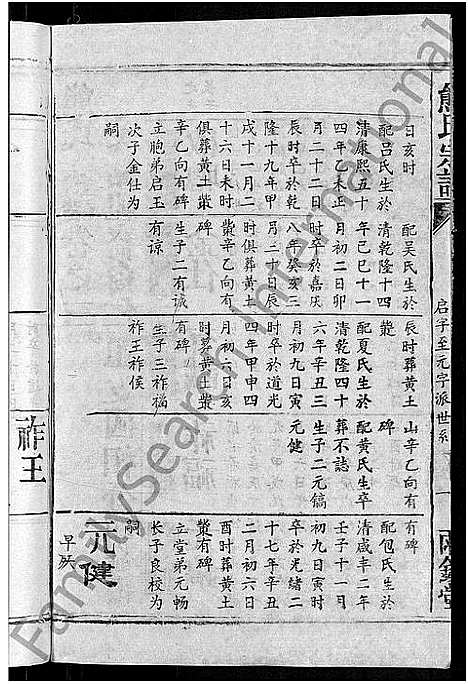 熊氏宗譜
启字至元字派世系
日亥時
配呂氏生於
清康熙五十
四年乙未正
月二十二日
辰時卒於乾
隆十九年甲
戌十一月二
十六日未時
俱葬黄土蘩
辛乙向有碑
立胞弟启玉
次子金仕为
嗣
配吴氏生於
清乾隆十四
年己巳十一
月初二日卯
时卒於嘉庆
八年癸亥三
月二十日辰
时俱葬黄土
蘩辛乙向有
碑
生子二有诚
有谅
辰时葬黄土
蘩
配夏氏生於
清乾隆四十
六年辛丑三
月初九日寅
时卒於道光
四年甲申四
月初六日亥
时葬黄土蘩
有碑
生子三祚福
祚王祚侯
山辛乙向有
碑
配黄氏生卒
葬不誌
生子二元鎬
元健
有碑
配包氏生於
清咸丰二年
壬子十一月
初九日寅时
卒於光绪二
十七年辛丑
二月初六日
酉时葬黄土
蘩有碑
立堂弟元畅
长子良校为
嗣
元健
早殁
祚王
FamilySearch International